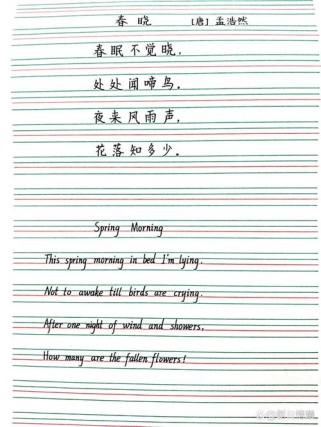 春晓 [唐] 孟浩然
春眠不觉晓,
处处闻啼鸟。
夜来风雨声,
花落知多少。
Spring Morning
This spring morning in bed I'm lying.
Not to awake till birds are crying.
After one night of wind and showers,
How many are the fallen flowers!